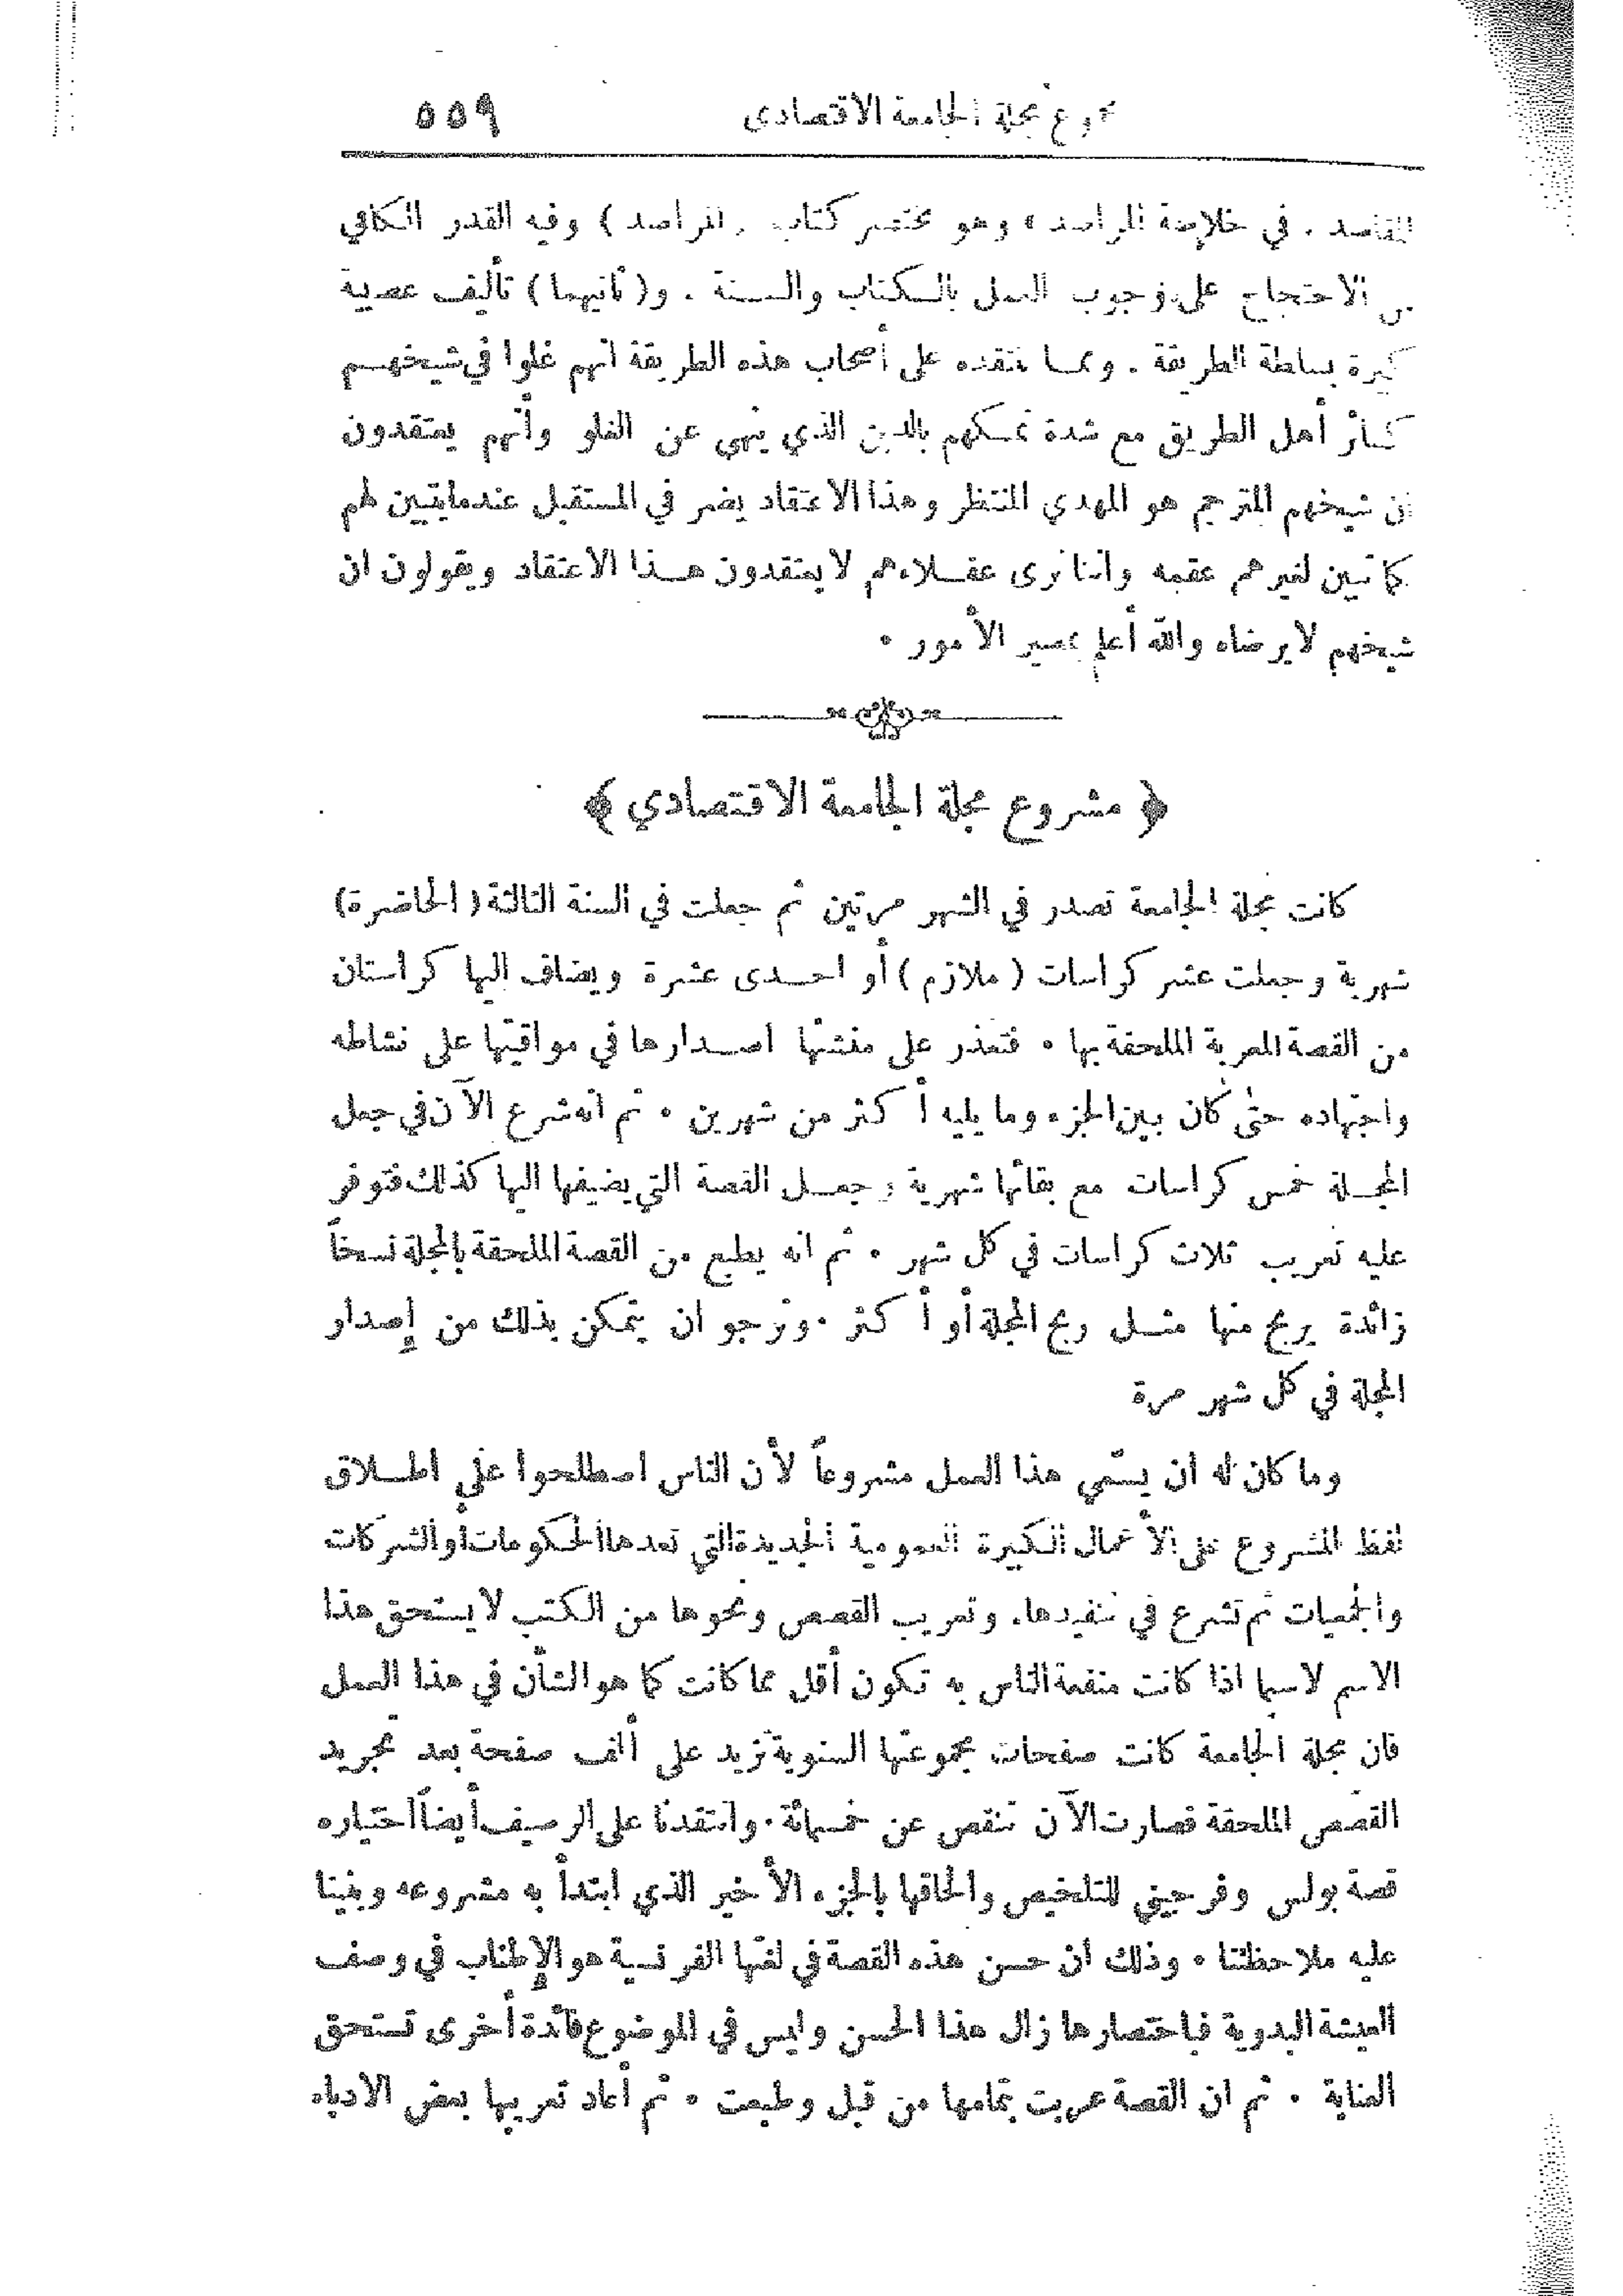 مشروع مجلة الجامعة الاقتصادي ٥٥٩
المقاصد . في خلاصة المراصد » وهو مختصر كتاب ( المراصد ) وفيه القدر الكافي
من الاحتجاج على وجوب العمل بالكتاب والسنة . و( ثانيهما ) تأليف عصبية
كبيرة بساطة الطريقة . ومما ننتقده على أصحاب هذه الطريقة انهم غلوا في شيخهم
كسائر أهل الطريق مع شدة تمسكهم بالدين الذي ينهى عن الغلو وأنهم يعتقدون
ان شيخهم المترجم هو المهدي المنتظر وهذا الاعتقاد يضر في المستقبل عندما يتبين لهم
كما تبين لغيرهم عقمه واننا نرى عقلاءهم لا يعتقدون هذا الاعتقاد ويقولون ان
شيخهم لا يرضاه والله أعلم بمصير الأمور .
﴿ مشروع مجلة الجامعة الاقتصادي ﴾
كانت مجلة الجامعة تصدر في الشهر مرتين ثم جعلت في السنة الثالثة ( الحاضرة )
شهرية وجعلت عشر كراسات ( ملازم ) أو احدى عشرة ويضاف اليها كراستان
من القصة المعربة الملحقة بها . فتعذر على منشئها اصدارها في مواقيتها على نشاطه
واجتهاده حتى كان بين الجزء وما يليه أكثر من شهرين . ثم انه شرع الآن في جعل
المجلة خمس كراسات مع بقائها شهرية وجعل القصة التي يضيفها اليها كذلك فتوفر
عليه تعريب ثلاث كراسات في كل شهر . ثم انه يطبع من القصة الملحقة بالمجلة نسخاً
زائدة يربح منها مثل ربح المجلة أو أكثر . ونرجو ان يتمكن بذلك من إصدار
المجلة في كل شهر مرة
وما كان له ان يسمي هذا العمل مشروعاً لأن الناس اصطلحوا على اطلاق
لفظ المشروع على الأعمال الكبيرة العمومية الجديدة التي تعدها الحكومات أو الشركات
والجمعيات ثم تشرع في تنفيذها . وتعريب القصص ونحوها من الكتب لا يستحق هذا
الاسم لاسيما اذا كانت منفعة الناس به تكون أقل مما كانت كما هو الشأن في هذا العمل
فان مجلة الجامعة كانت صفحات مجموعتها السنوية تزيد على ألف صفحة بعد تجريد
القصص الملحقة فصارت الآن تنقص عن خمسمائة . وانتقدنا على الرصيف أيضاً اختياره
قصة بولس وفرجيني للتلخيص والحاقها بالجزء الأخير الذي ابتدأ به مشروعه وبنينا
عليه ملاحظتنا . وذلك ان حسن هذه القصة في لغتها الفرنسية هو الإطناب في وصف
المعيشة البدوية فباختصارها زال هذا الحسن وليس في الموضوع فائدة أخرى تستحق
العناية . ثم ان القصة عربت بتمامها من قبل وطبعت . ثم أعاد تعريبها بعض الادباء